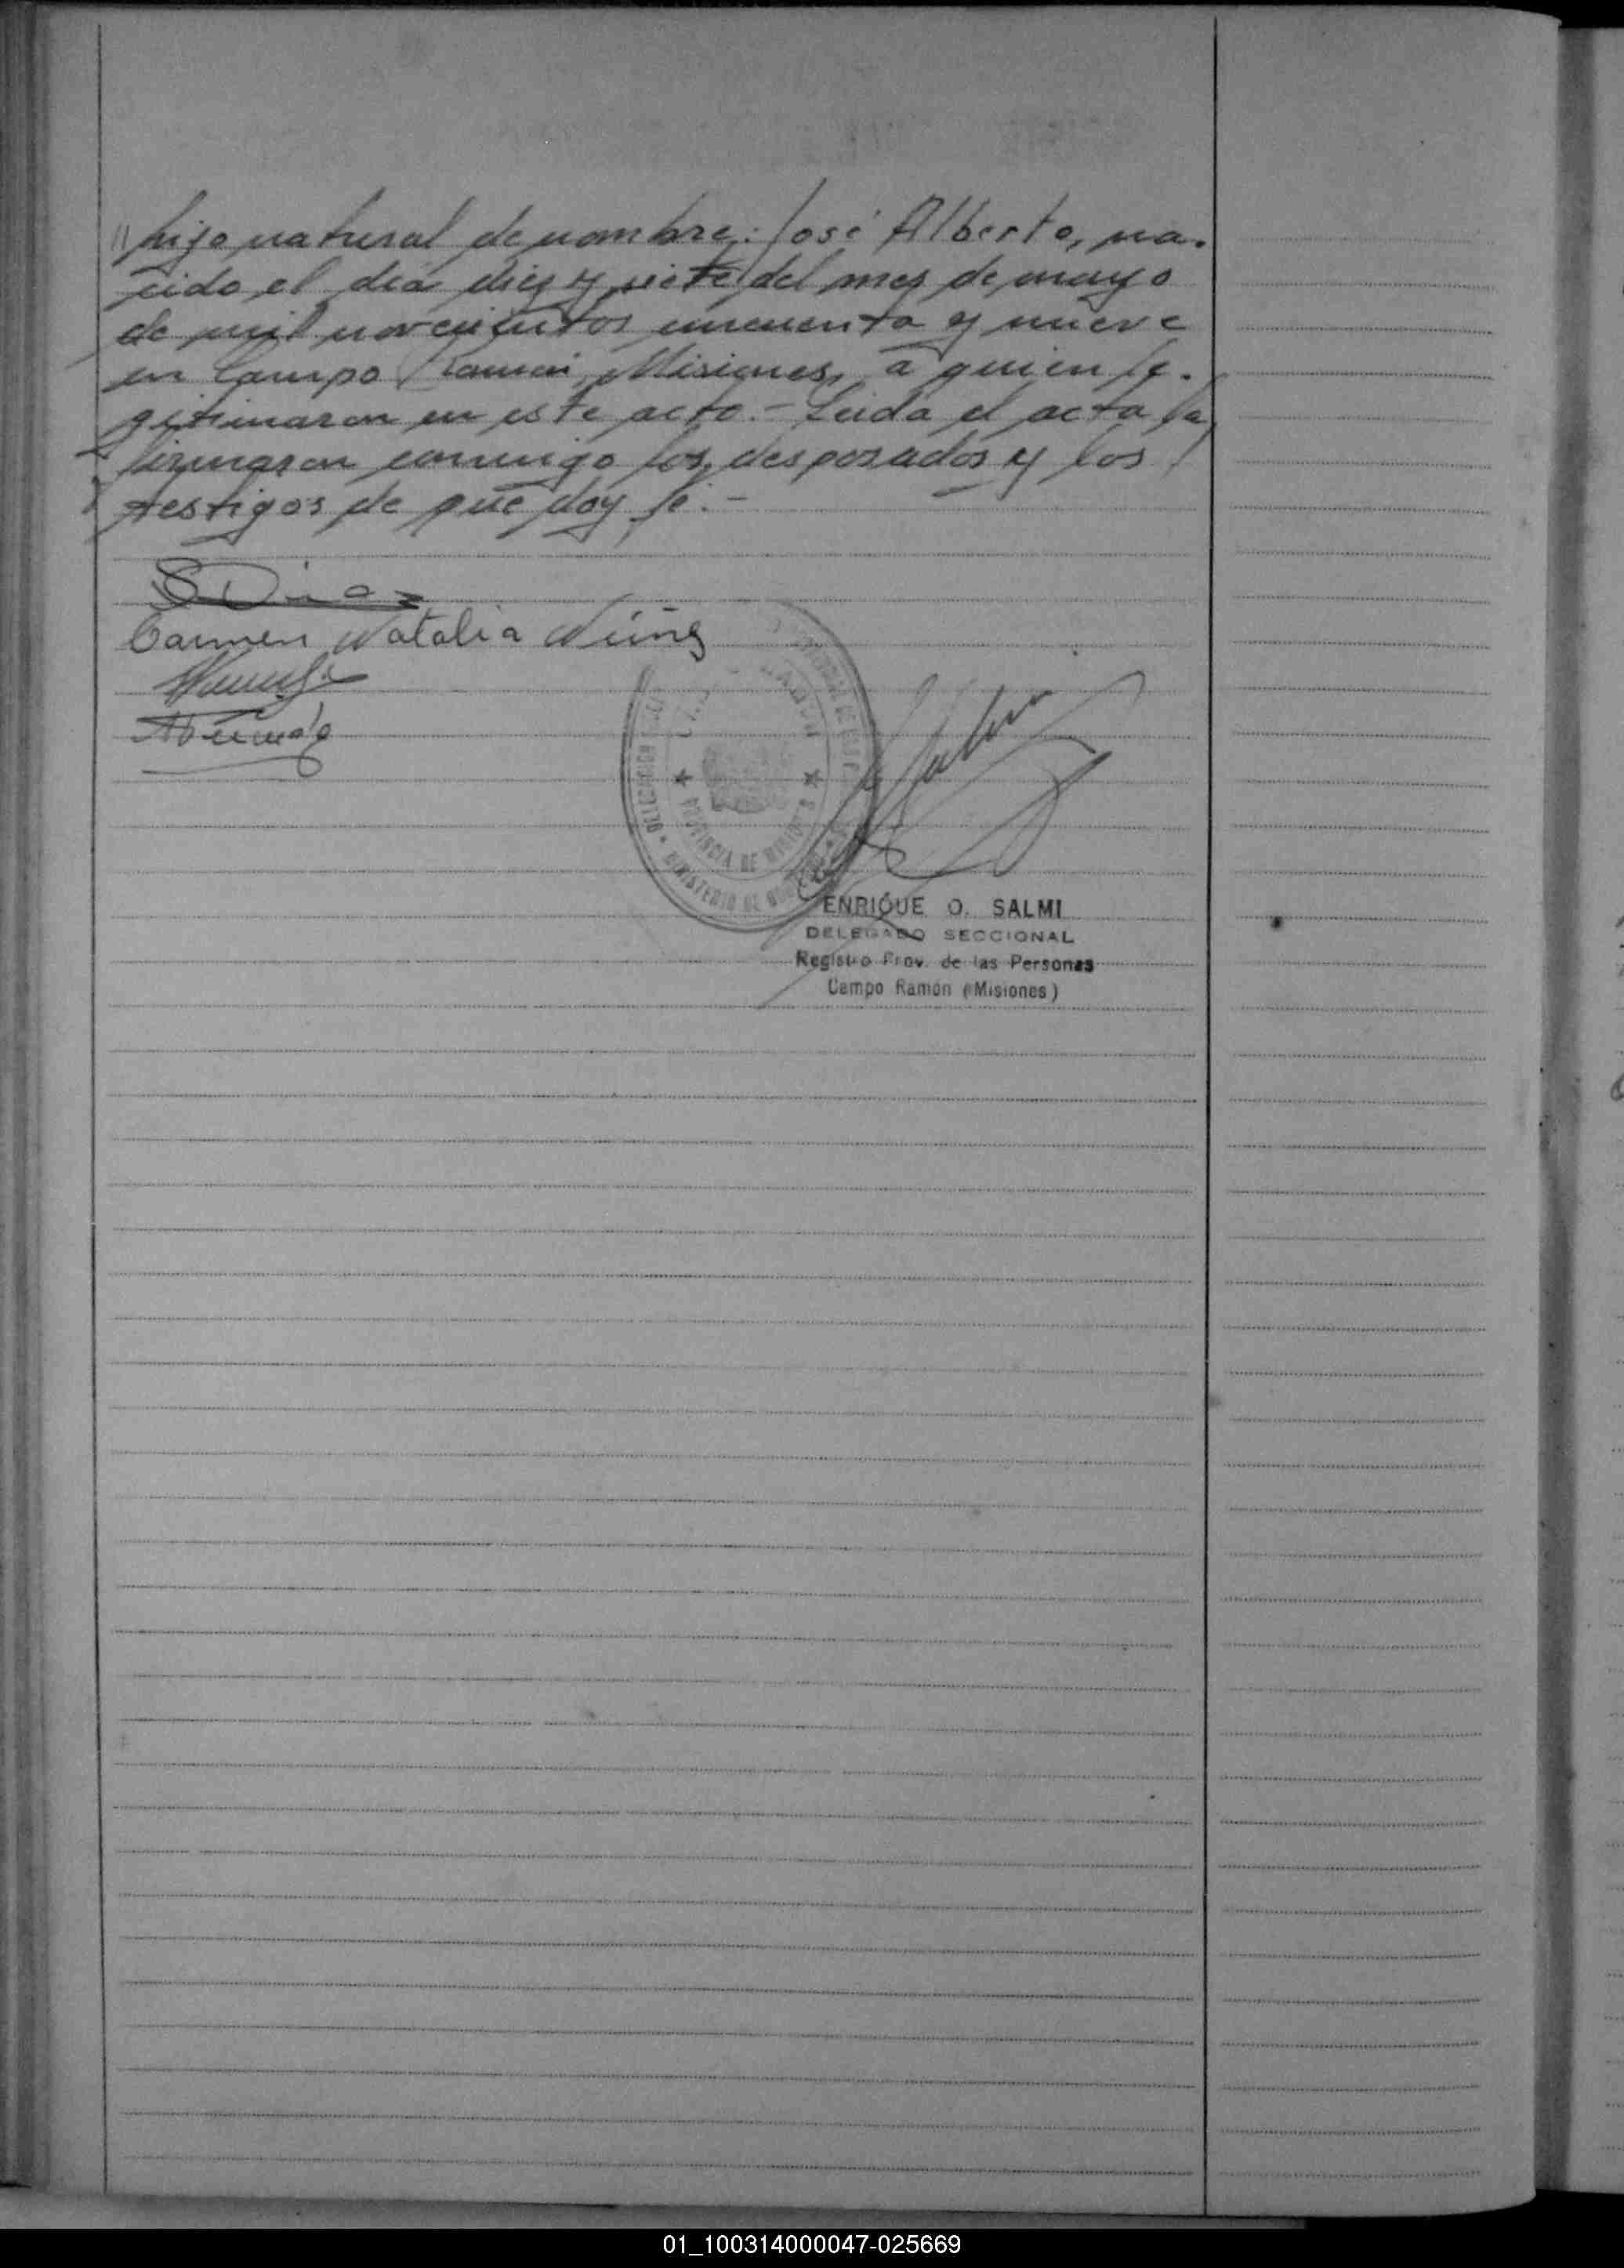 // hijo natural de nombre: José Alberto, na-
cido el día diez y siete del mes de mayo
de mil novecientos cincuenta y nueve
en Campo Ramón, Misiones, a quien le-
gitimaron en este acto.- Leída el acta la
firmaron conmigo los desposados y los
testigos de que doy fé.-
S Diaz
Carmen Natalia Núñez
DELEGACION
PROVINCIA DE MISIONES
MINISTERIO DE GOBIERNO
ENRIQUE O. SALMI
DELEGADO SECCIONAL
Registro Prov. de las Personas
Campo Ramón (Misiones)
01_100314000047-025669